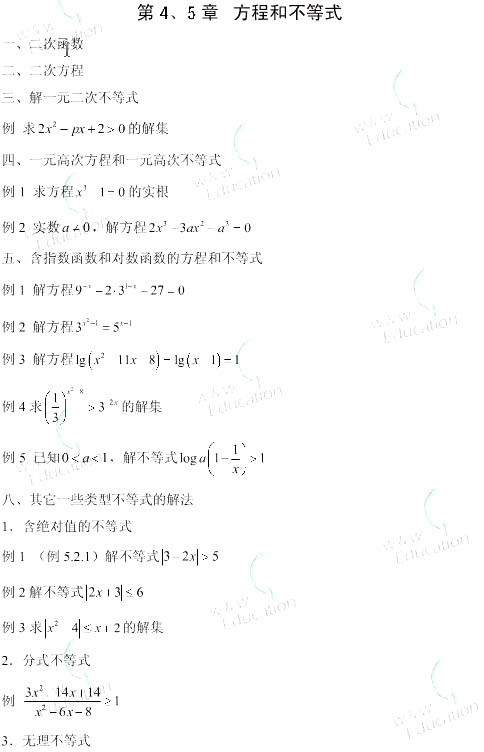 第 4、5 章 方程和不等式
一、二次函数
二、二次方程
三、解一元二次不等式
例 求 2x² − px + 2 > 0 的解集
四、一元高次方程和一元高次不等式
例 1 求方程 x³ 1 = 0 的实根
例 2 实数 a ≠ 0，解方程 2x³ − 3ax² − a³ = 0
五、含指数函数和对数函数的方程和不等式
例 1 解方程 9⁻ˣ − 2·3¹⁻ˣ − 27 = 0
例 2 解方程 3^(x²−1) = 5^(x−1)
例 3 解方程 lg(x² 11x 8) − lg(x 1) = 1
例 4 求 (1/3)^(x² 8) > 3^(−2x) 的解集
例 5 已知 0 < a < 1，解不等式 log a(1 − 1/x) > 1
八、其它一些类型不等式的解法
1．含绝对值的不等式
例 1 （例 5.2.1）解不等式 |3 − 2x| > 5
例 2 解不等式 |2x + 3| ≤ 6
例 3 求 |x² 4| ≤ x + 2 的解集
2．分式不等式
例 (3x² 14x + 14)/(x² − 6x − 8) ≥ 1
3．无理不等式
W&W Education
W&W Education
W&W Education
W&W Education
W&W Education
W&W Education
W&W Education
W&W Education